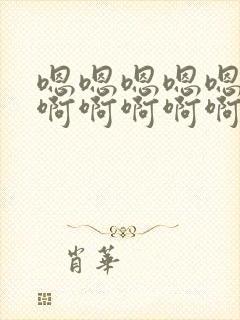 嗯嗯嗯嗯嗯
啊啊啊啊啊
肖华